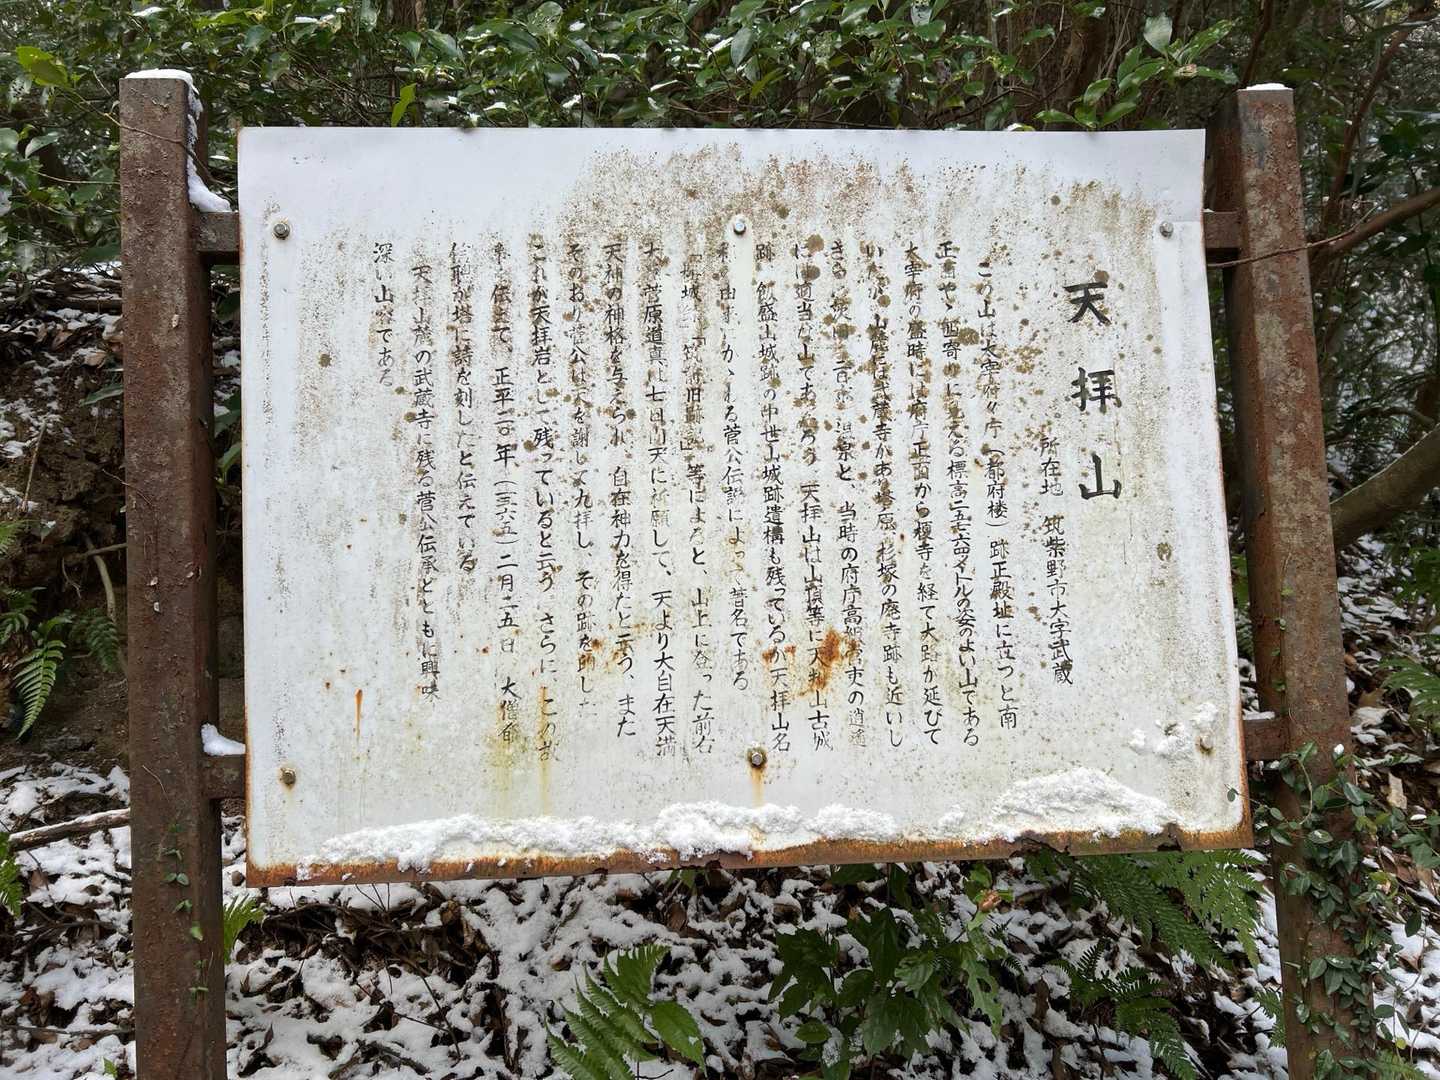 天拝山
所在地 筑紫野市大字武蔵
この山は大宰府々庁(都府楼)跡正殿址に立つと南
正面やゝ西寄りに見える標高二五七・六メートルの姿のよい山である
大宰府の盛時には府庁正面から榎寺を経て大路が延びて
いたが、山麓には武蔵寺があり塔原、杉塚の廃寺跡も近いし
きる 次田 温泉と、当時の府庁高級官吏の逍遥
には適当な山であったろう、天拝山は山頂等に天判山古城
跡、飯盛山城跡の中世山城跡遺構も残っているが天拝山名
由 かゝわる菅公伝説によって著名である
旧跡 」等によると、山上に登った前右
菅原道真は七日間天に祈願して、天より大自在天満
天神の神格を与えられ、自在神力を得たと云う、また
そのおり菅公は天を謝して九拝し、その跡を印した
これが天拝岩として残っていると云う。さらに、この故
事を伝えて、正平二〇年(一三六五)二月二五日、大僧都
信聡が塔に詩を刻したと伝えている
天拝山麓の武蔵寺に残る菅公伝承とともに興味
深い山 である